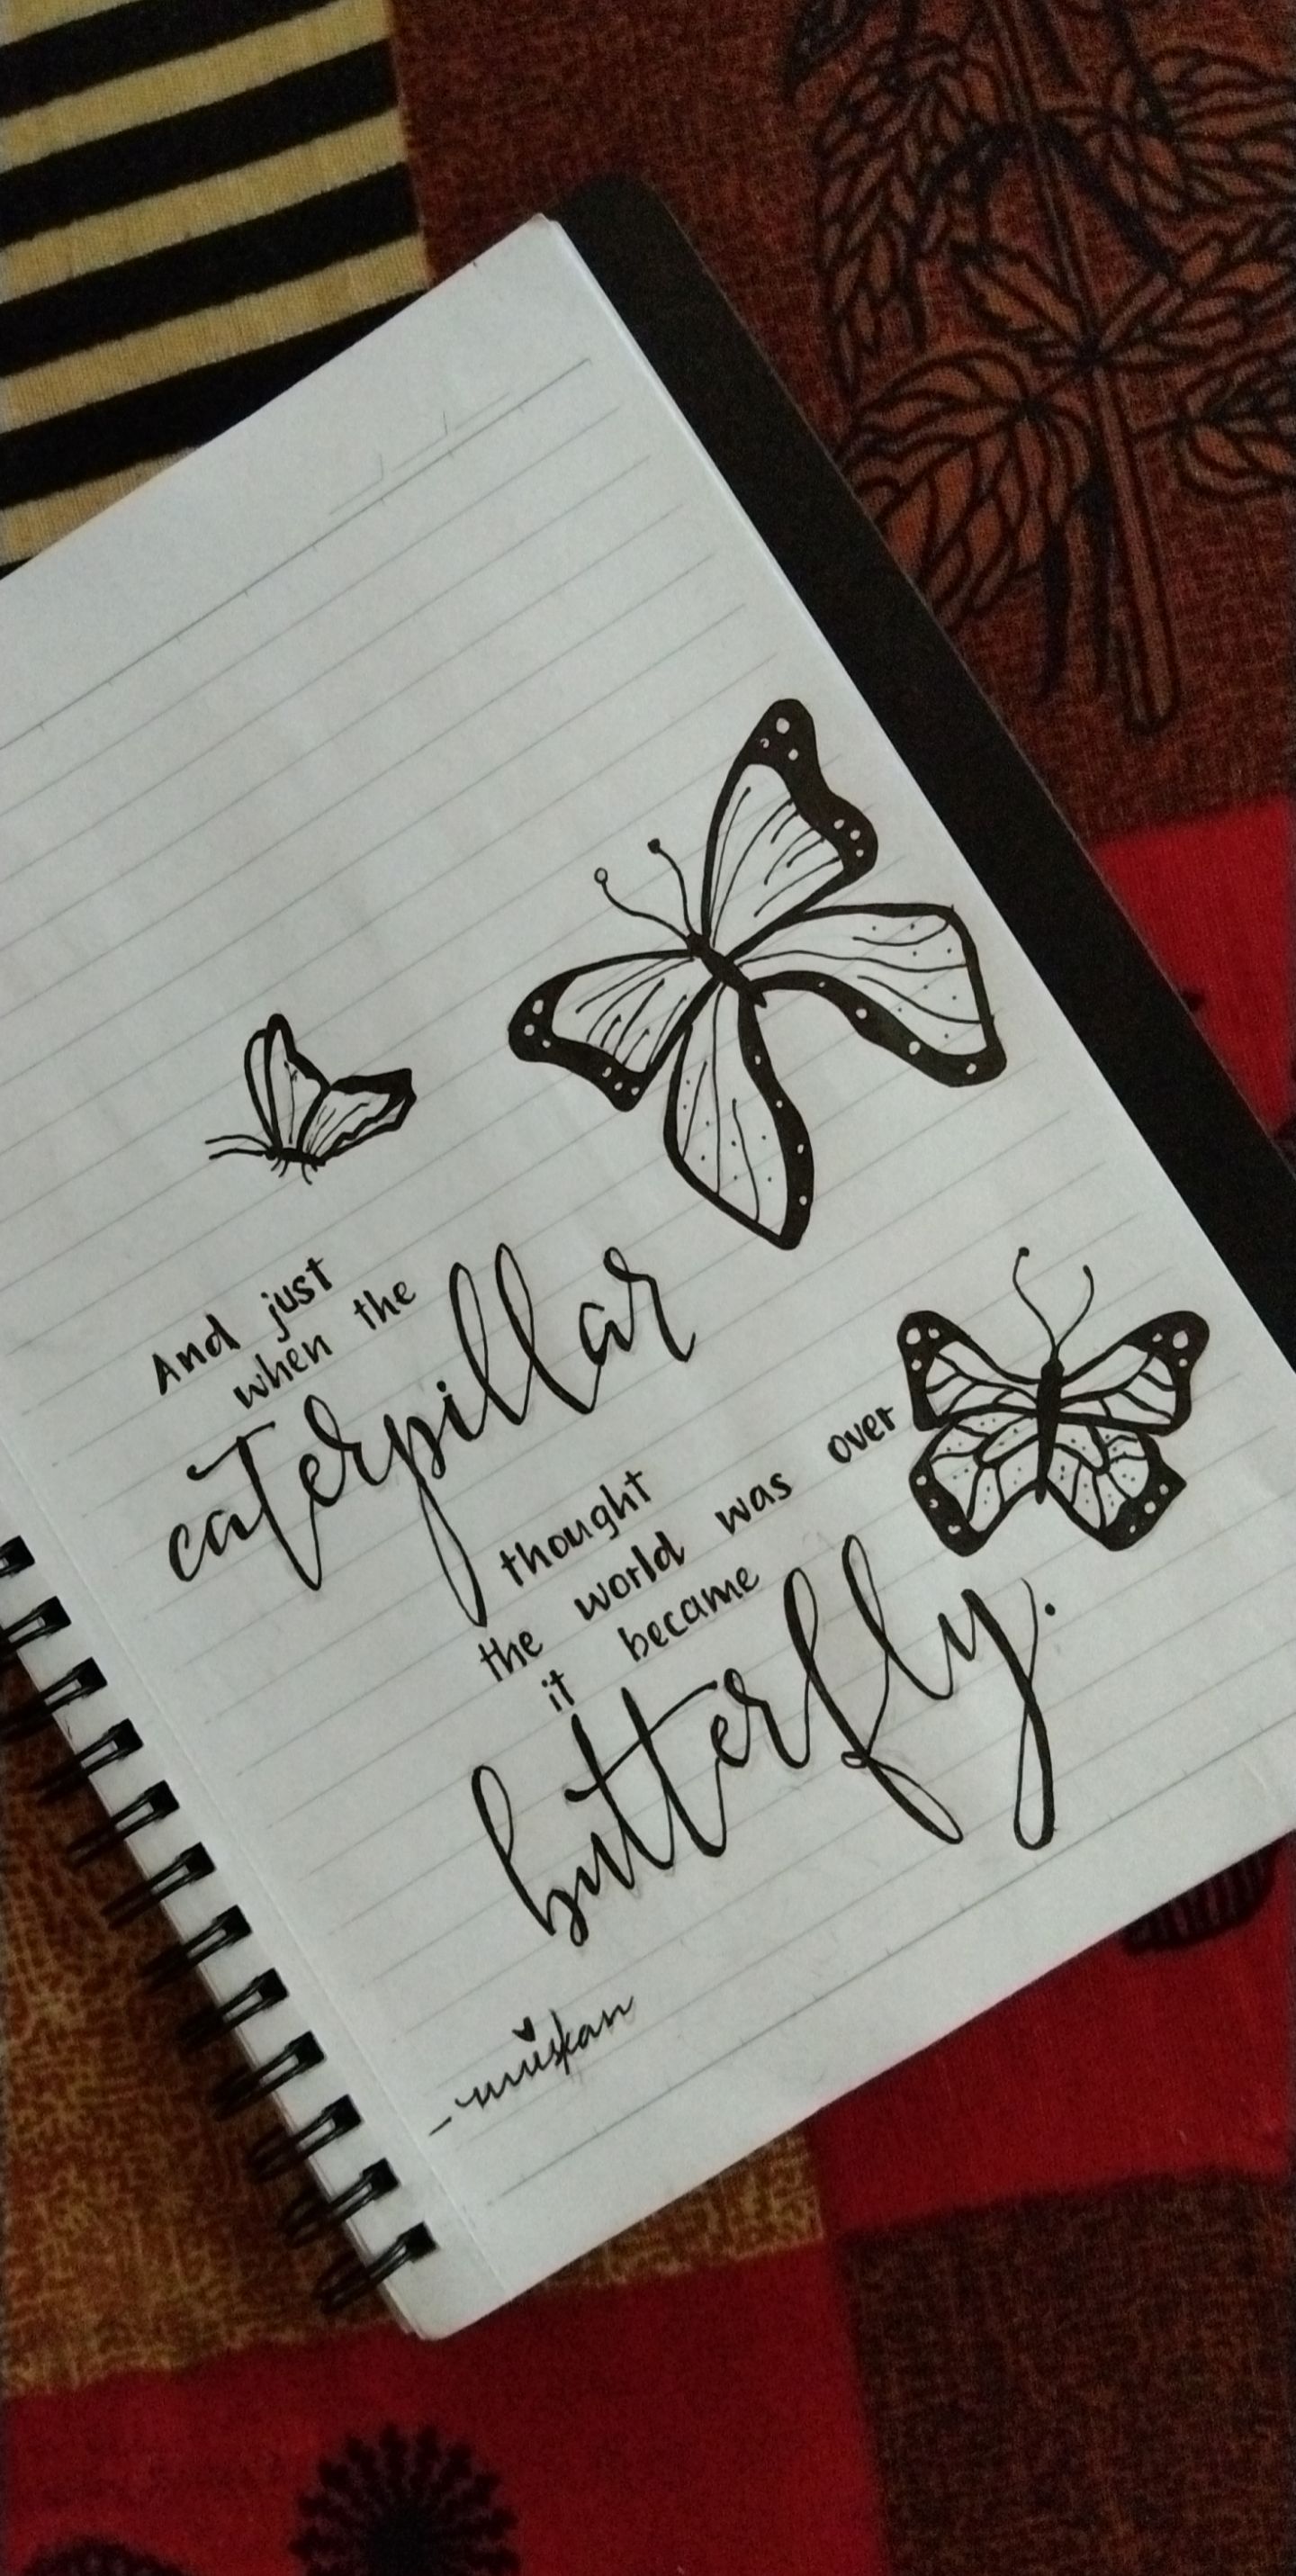 And just
when the
caterpillar
thought
the world was over
it became
butterfly.
- muskan